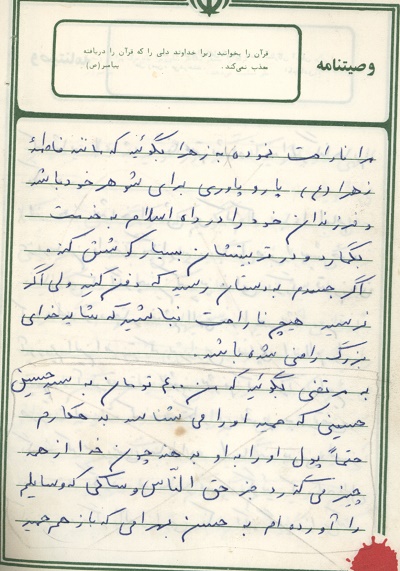 وصیتنامه
قرآن را بخوانید زیرا خداوند دلی را که قرآن را دریافته
عذب نمی‌کند. پیامبر(ص)
مرا ناراحت نموده به زهرا بگوئید که مانند فاطمهٔ
زهرا (ع) یار و یاوری برای شوهر خود باشد
و فرزندان خود را در راه اسلام به خدمت
بگمارد و در تربیتشان بسیار کوشش کند.
اگر جسدم بدستان رسید که دفن کنید ولی اگر
نرسید هیچ ناراحت نباشید که شاید خدای
بزرگ راضی شده باشد.
به مرتضی بگوئید که من ۶۰۰ تومان به سید حسین
حسینی که حمید او را می‌شناسد بدهکارم
حتماً پول او را به او بدهند چون خدا از همه
چیز می‌گذرد جز حق الناس و ساکی که وسایلم
را آورده‌ام به حسن بهرامی که باز هم حمید